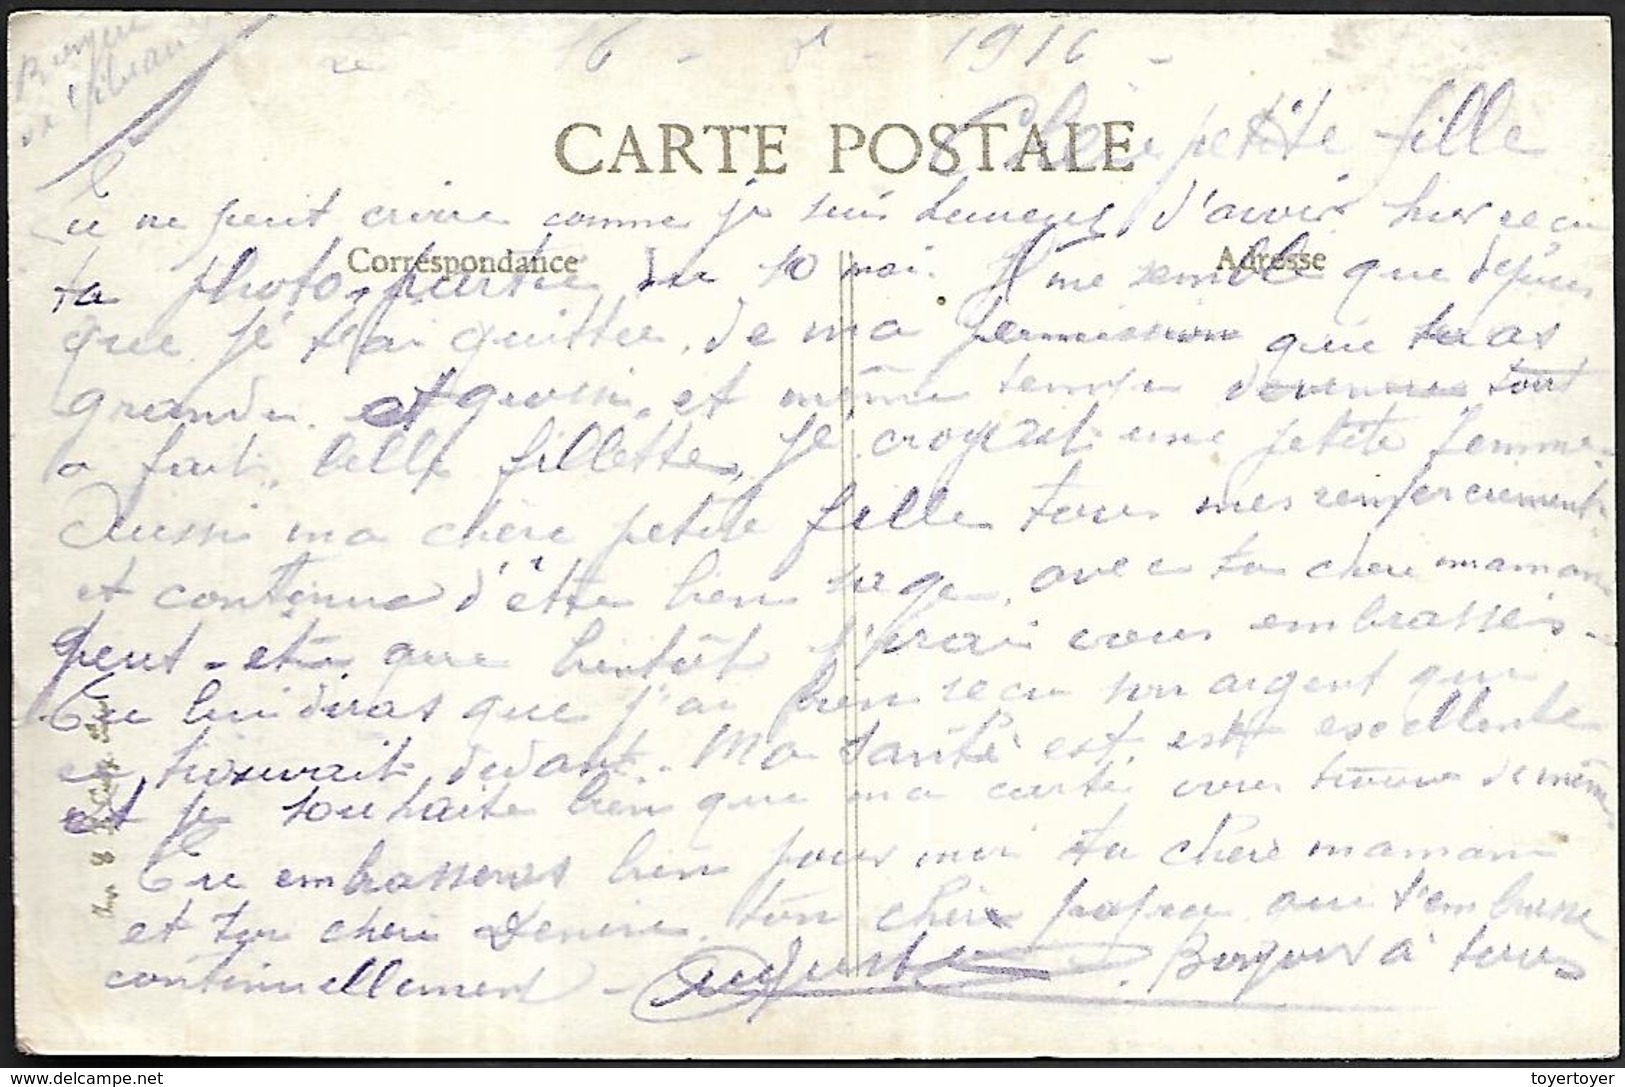 16 - 5 - 1916 -
CARTE POSTALE
Chère petite fille
Tu ne peut croire comme je suis heureux d'avoir hier recu
Correspondance
Adresse
ta photo, partie du 10 mai. Il me semble que depuis
que je t'ai quittée, de ma permission que tu as
grandie et grossie, et même temps devenue tout
a fait, belle fillette, je croyait une petite femme.
Aussi ma chère petite fille tous mes remerciements
et continue d'être bien sage, avec ta chère maman
peut-être que bientôt j'irai vous embrasseis -
Tu lui diras que j'ai bien recu son argent qui
se trouvait dedant. Ma santé est, est excellente
et je souhaite bien que ma carte vous trouve de même
Tu embrasseras bien pour moi ta chère maman
et ton cheri Denise, ton chèr papa qui t'embrasse
continuellement - Auguste. Bonjour à tous
toyertoyer